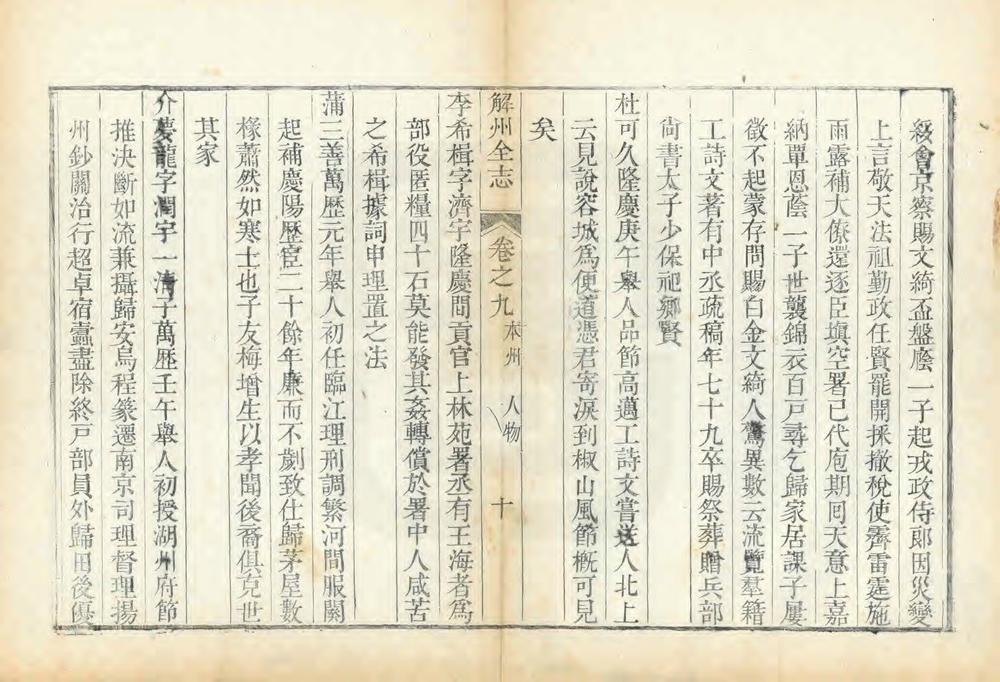 級會京察賜文綺盃盤廕一子起戎政侍郎因災變
上言敬天法祖勤政任賢罷開採撤稅使霽雷霆施
雨露補大僚還逐臣塡空署已代庖期囘天意上嘉
納覃恩蔭一子世襲錦衣百戸尋乞歸家居課子屢
徵不起蒙存問賜白金文綺人驚異數云流覽羣籍
工詩文著有中丞疏稿年七十九卒賜祭葬贈兵部
尙書太子少保祀鄕賢
杜可久隆慶庚午舉人品節高邁工詩文嘗送人北上
云見說容城爲便道憑君寄淚到椒山風節槪可見
矣
解州全志 卷之九 本州 人物 十
李希楫字濟宇隆慶間貢官上林苑署丞有王海者爲
部役匿糧四十石莫能發其姦轉償於署中人咸苦
之希楫據詞申理置之法
蒲三善萬歷元年舉人初任臨江理刑調繁河間服闋
起補慶陽歷宦二十餘年廉而不劌致仕歸茅屋數
椽蕭然如寒士也子友梅增生以孝聞後裔俱克世
其家
介夢龍字潤宇一清子萬歷壬午舉人初授湖州府節
推決斷如流兼攝歸安烏程篆遷南京司理督理揚
州鈔關治行超卓宿蠹盡除終戸部員外歸田後優